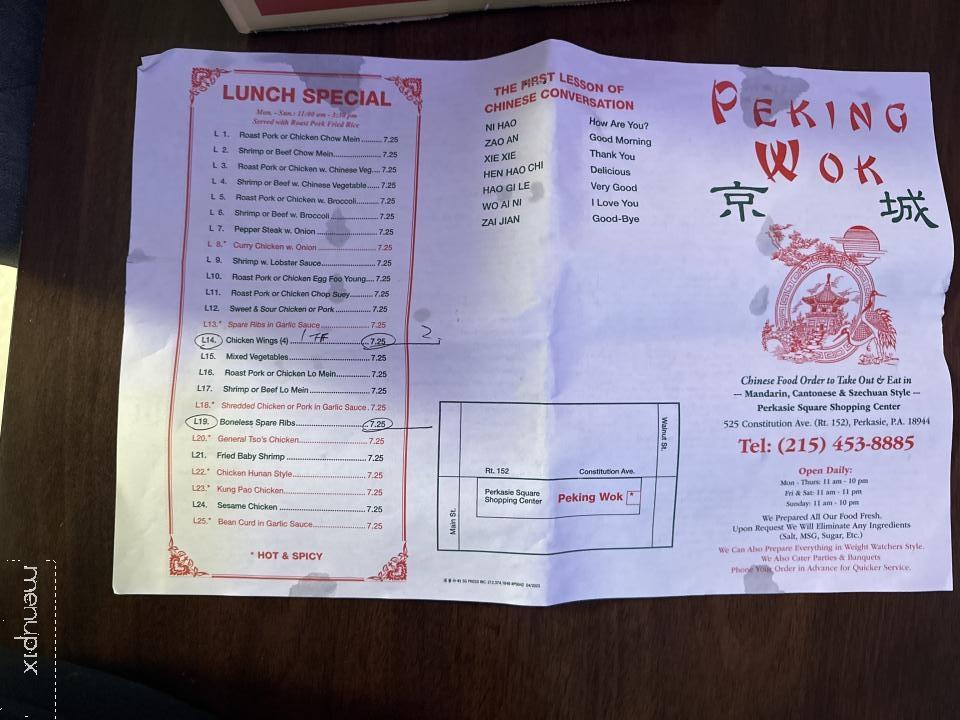 LUNCH SPECIAL
Mon. - Sun.: 11:00 am - 3:30 pm
Served with Roast Pork Fried Rice
L 1. Roast Pork or Chicken Chow Mein..........7.25
L 2. Shrimp or Beef Chow Mein..................7.25
L 3. Roast Pork or Chicken w. Chinese Veg....7.25
L 4. Shrimp or Beef w. Chinese Vegetable......7.25
L 5. Roast Pork or Chicken w. Broccoli..........7.25
L 6. Shrimp or Beef w. Broccoli..................7.25
L 7. Pepper Steak w. Onion......................7.25
L 8.* Curry Chicken w. Onion......................7.25
L 9. Shrimp w. Lobster Sauce....................7.25
L10. Roast Pork or Chicken Egg Foo Young....7.25
L11. Roast Pork or Chicken Chop Suey..........7.25
L12. Sweet & Sour Chicken or Pork..............7.25
L13.* Spare Ribs in Garlic Sauce..................7.25
L14. Chicken Wings (4)............................7.25 2
L15. Mixed Vegetables............................7.25
L16. Roast Pork or Chicken Lo Mein............7.25
L17. Shrimp or Beef Lo Mein....................7.25
L18.* Shredded Chicken or Pork in Garlic Sauce.7.25
L19. Boneless Spare Ribs........................7.25
L20.* General Tso's Chicken......................7.25
L21. Fried Baby Shrimp..........................7.25
L22.* Chicken Hunan Style........................7.25
L23.* Kung Pao Chicken..........................7.25
L24. Sesame Chicken............................7.25
L25.* Bean Curd in Garlic Sauce..................7.25
* HOT & SPICY
THE FIRST LESSON OF
CHINESE CONVERSATION
NI HAO How Are You?
ZAO AN Good Morning
XIE XIE Thank You
HEN HAO CHI Delicious
HAO GI LE Very Good
WO AI NI I Love You
ZAI JIAN Good-Bye
Walnut St.
Rt. 152 Constitution Ave.
Perkasie Square
Shopping Center
Peking Wok *
Main St.
PEKING
WOK
京 城
Chinese Food Order to Take Out & Eat in
--- Mandarin, Cantonese & Szechuan Style ---
Perkasie Square Shopping Center
525 Constitution Ave. (Rt. 152), Perkasie, P.A. 18944
Tel: (215) 453-8885
Open Daily:
Mon - Thurs: 11 am - 10 pm
Fri & Sat: 11 am - 11 pm
Sunday: 11 am - 10 pm
We Prepared All Our Food Fresh.
Upon Request We Will Eliminate Any Ingredients
(Salt, MSG, Sugar, Etc.)
We Can Also Prepare Everything in Weight Watchers Style.
We Also Cater Parties & Banquets
Phone Your Order in Advance for Quicker Service.
menupix